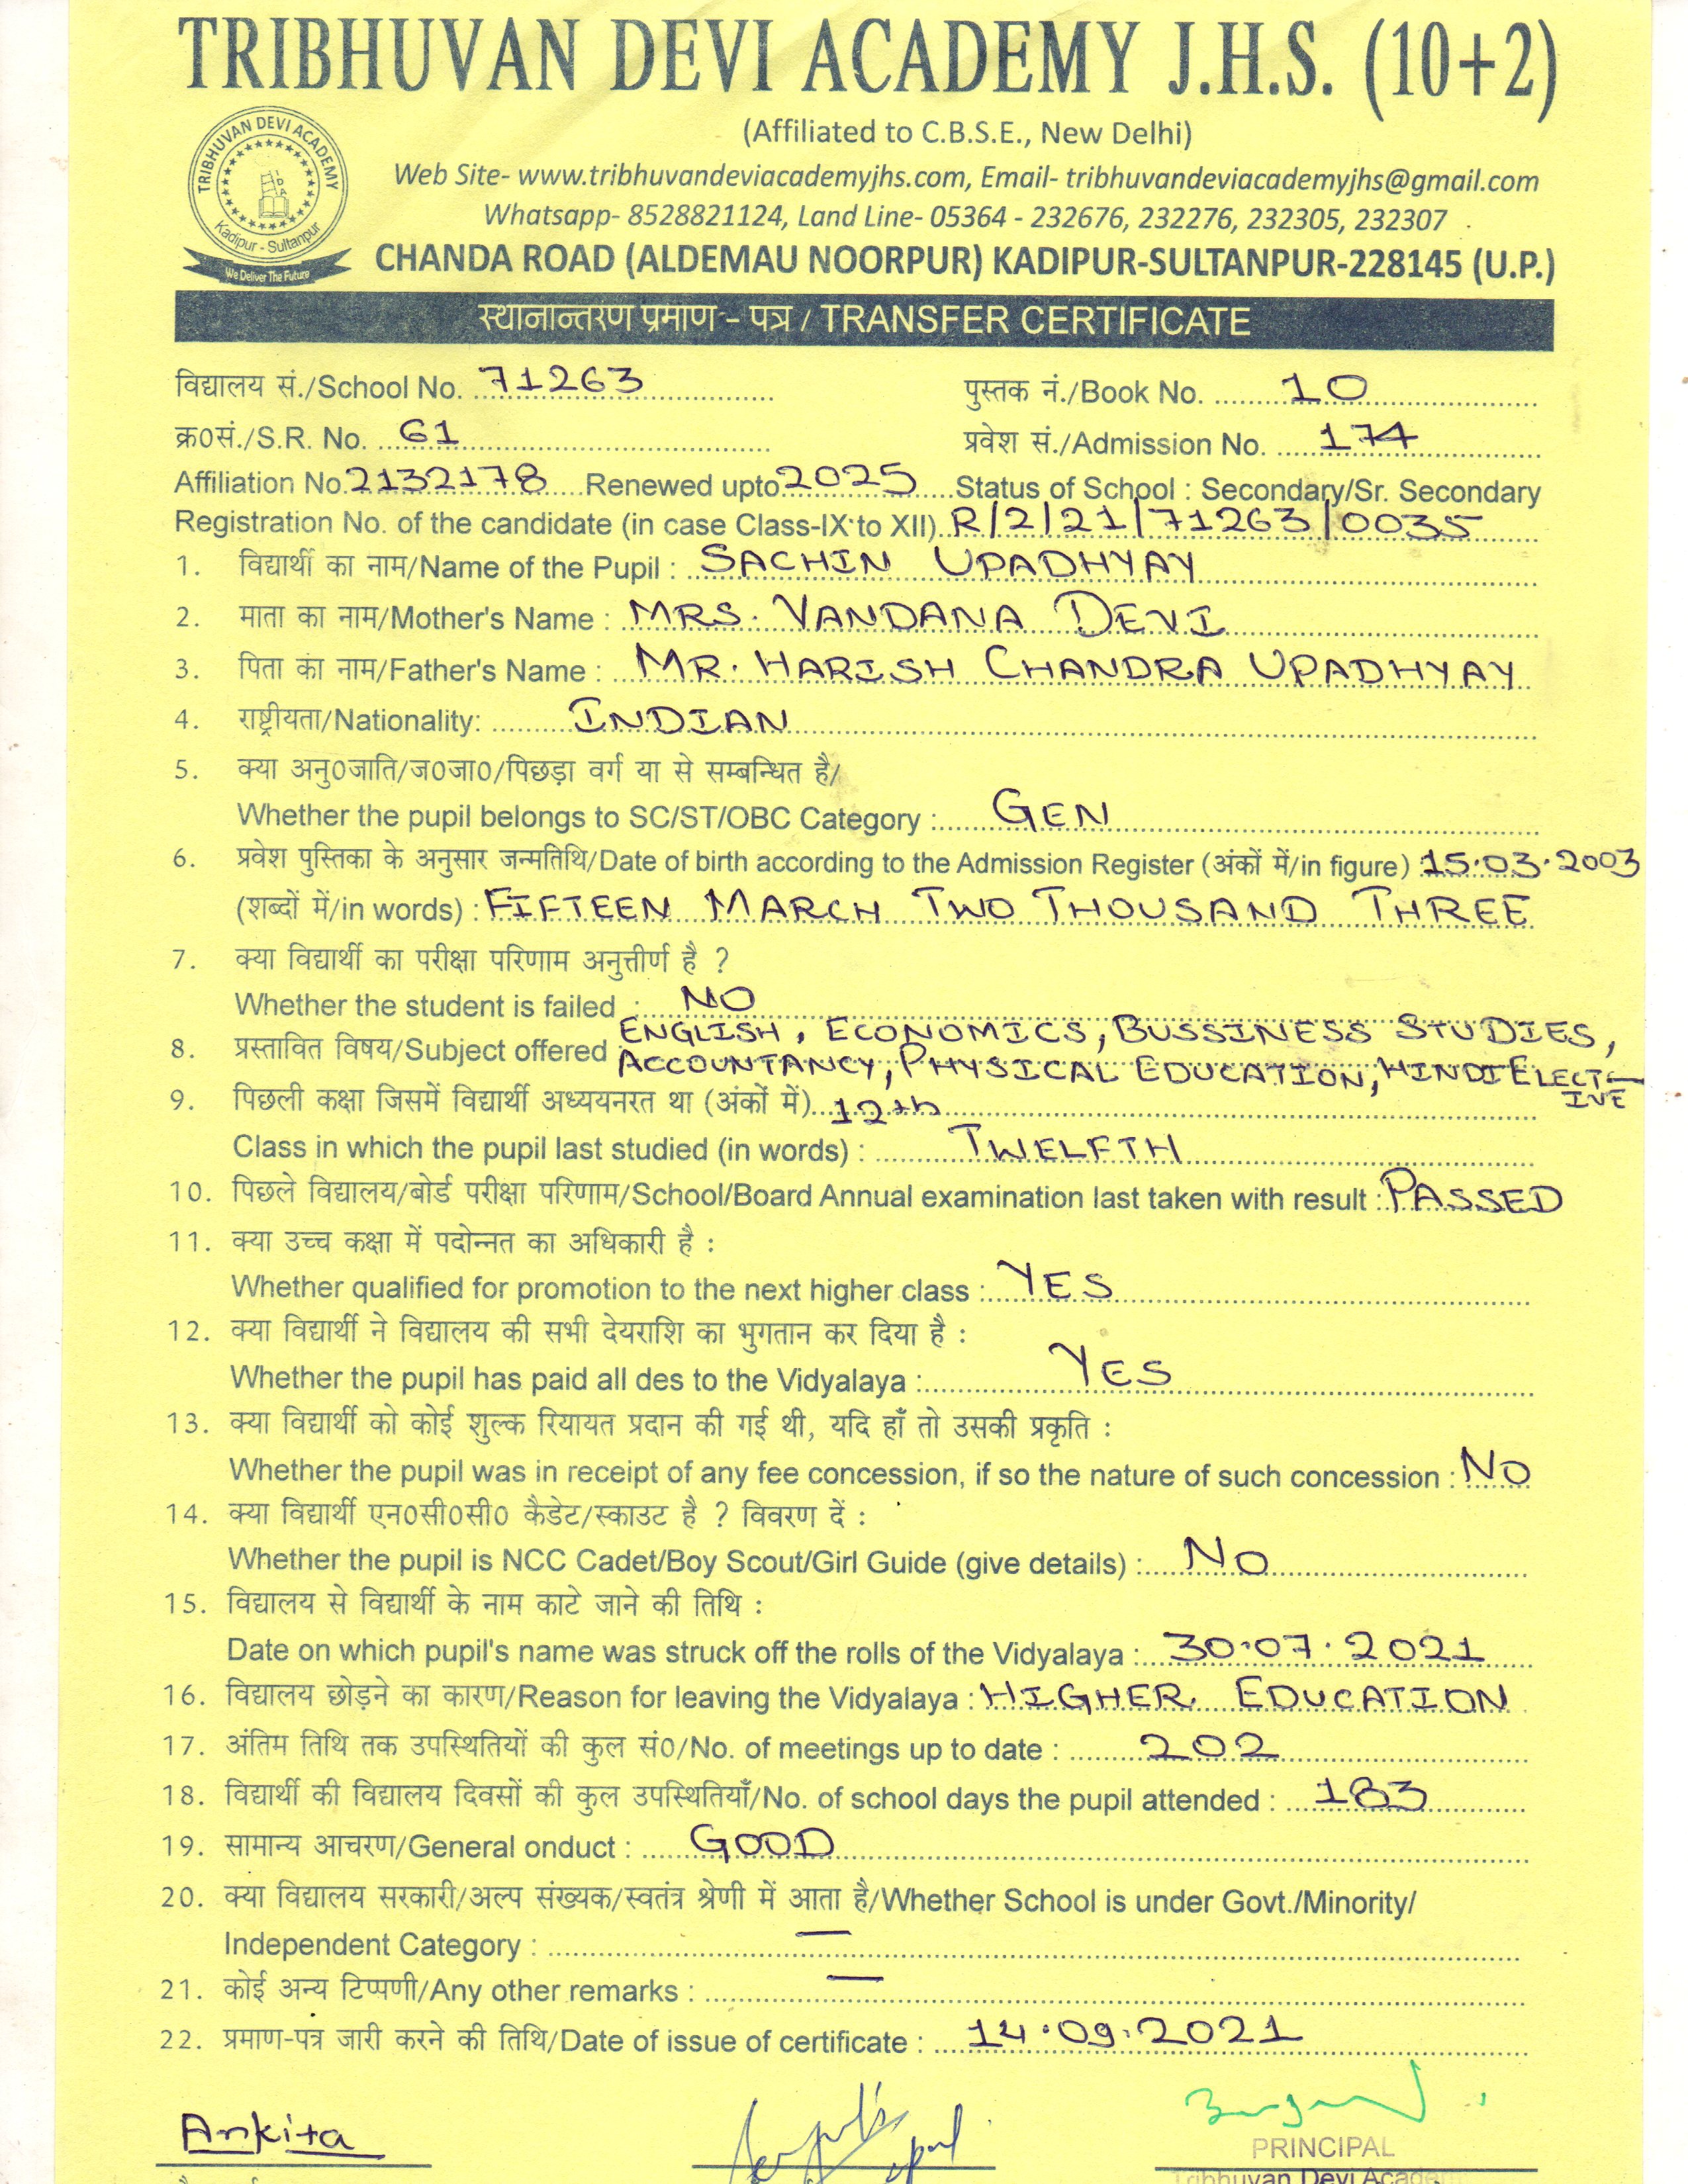 TRIBHUVAN DEVI ACADEMY J.H.S. (10+2)
(Affiliated to C.B.S.E., New Delhi)
TRIBHUVAN DEVI ACADEMY
Kadipur - Sultanpur
We Deliver The Future
Web Site- www.tribhuvandeviacademyjhs.com, Email- tribhuvandeviacademyjhs@gmail.com
Whatsapp- 8528821124, Land Line- 05364 - 232676, 232276, 232305, 232307
CHANDA ROAD (ALDEMAU NOORPUR) KADIPUR-SULTANPUR-228145 (U.P.)
स्थानान्तरण प्रमाण - पत्र / TRANSFER CERTIFICATE
विद्यालय सं./School No. 71263 पुस्तक नं./Book No. 10
क्र०सं./S.R. No. 61 प्रवेश सं./Admission No. 174
Affiliation No. 2132178 Renewed upto 2025 Status of School : Secondary/Sr. Secondary
Registration No. of the candidate (in case Class-IX to XII) R/2/21/71263/0035
1. विद्यार्थी का नाम/Name of the Pupil : SACHIN UPADHYAY
2. माता का नाम/Mother's Name : MRS. VANDANA DEVI
3. पिता का नाम/Father's Name : MR. HARISH CHANDRA UPADHYAY
4. राष्ट्रीयता/Nationality: INDIAN
5. क्या अनु०जाति/ज०जा०/पिछड़ा वर्ग या से सम्बन्धित है/
Whether the pupil belongs to SC/ST/OBC Category : GEN
6. प्रवेश पुस्तिका के अनुसार जन्मतिथि/Date of birth according to the Admission Register (अंकों में/in figure) 15.03.2003
(शब्दों में/in words) : FIFTEEN MARCH TWO THOUSAND THREE
7. क्या विद्यार्थी का परीक्षा परिणाम अनुत्तीर्ण है ?
Whether the student is failed : NO
8. प्रस्तावित विषय/Subject offered ENGLISH, ECONOMICS, BUSSINESS STUDIES,
ACCOUNTANCY, PHYSICAL EDUCATION, HINDI ELECT-
IVE
9. पिछली कक्षा जिसमें विद्यार्थी अध्ययनरत था (अंकों में) 12th
Class in which the pupil last studied (in words) : TWELFTH
10. पिछले विद्यालय/बोर्ड परीक्षा परिणाम/School/Board Annual examination last taken with result : PASSED
11. क्या उच्च कक्षा में पदोन्नत का अधिकारी है :
Whether qualified for promotion to the next higher class : YES
12. क्या विद्यार्थी ने विद्यालय की सभी देयराशि का भुगतान कर दिया है :
Whether the pupil has paid all des to the Vidyalaya : YES
13. क्या विद्यार्थी को कोई शुल्क रियायत प्रदान की गई थी, यदि हाँ तो उसकी प्रकृति :
Whether the pupil was in receipt of any fee concession, if so the nature of such concession : NO
14. क्या विद्यार्थी एन०सी०सी० कैडेट/स्काउट है ? विवरण दें :
Whether the pupil is NCC Cadet/Boy Scout/Girl Guide (give details) : NO
15. विद्यालय से विद्यार्थी के नाम काटे जाने की तिथि :
Date on which pupil's name was struck off the rolls of the Vidyalaya : 30.07.2021
16. विद्यालय छोड़ने का कारण/Reason for leaving the Vidyalaya : HIGHER EDUCATION
17. अंतिम तिथि तक उपस्थितियों की कुल सं०/No. of meetings up to date : 202
18. विद्यार्थी की विद्यालय दिवसों की कुल उपस्थितियाँ/No. of school days the pupil attended : 183
19. सामान्य आचरण/General onduct : GOOD
20. क्या विद्यालय सरकारी/अल्प संख्यक/स्वतंत्र श्रेणी में आता है/Whether School is under Govt./Minority/
Independent Category : —
21. कोई अन्य टिप्पणी/Any other remarks : —
22. प्रमाण-पत्र जारी करने की तिथि/Date of issue of certificate : 14.09.2021
Ankita
PRINCIPAL
Tribhuvan Devi Academ